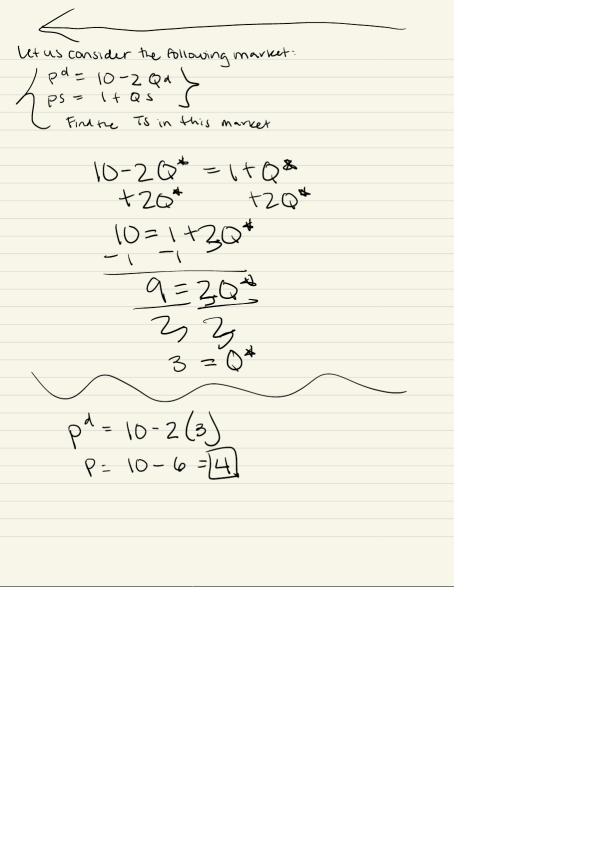 Let us consider the following market:
pᵈ = 10 - 2Qd
ps = 1 + Qs
Find the TS in this market
10 - 2Q* = 1 + Q*
+2Q* +2Q*
10 = 1 + 3Q*
-1 -1
9 = 3Q*
3 3
3 = Q*
pᵈ = 10 - 2(3)
P = 10 - 6 = 4